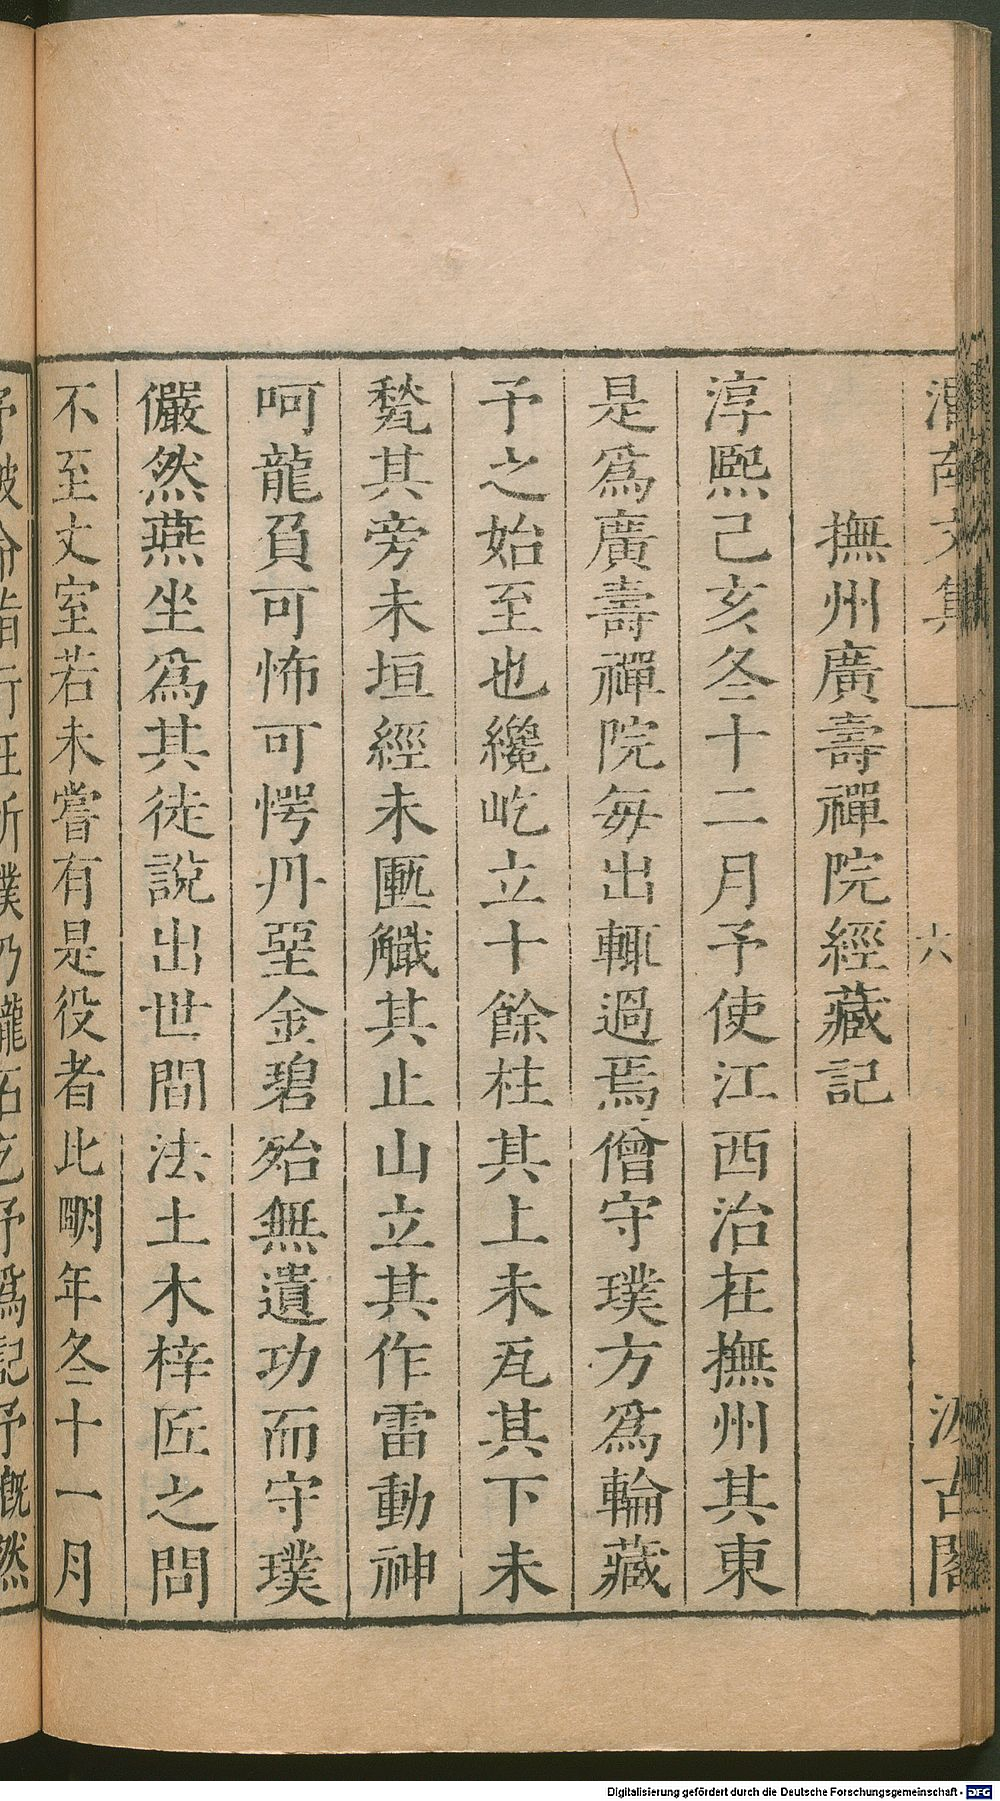 渭南文集 六 汲古閣
撫州廣壽禪院經藏記
淳熙己亥冬十二月予使江西治在撫州其東
是爲廣壽禪院每出輒過焉僧守璞方爲輪藏
予之始至也纔屹立十餘柱其上未瓦其下未
甃其旁未垣經未匭其止山立其作雷動神
呵龍負可怖可愕丹堊金碧殆無遺功而守璞
儼然燕坐爲其徒說出世間法土木梓匠之問
不至丈室若未嘗有是役者比明年冬十一月
予被命詣行在所璞乃礲石乞予爲記予慨然
Digitalisierung gefördert durch die Deutsche Forschungsgemeinschaft - DFG